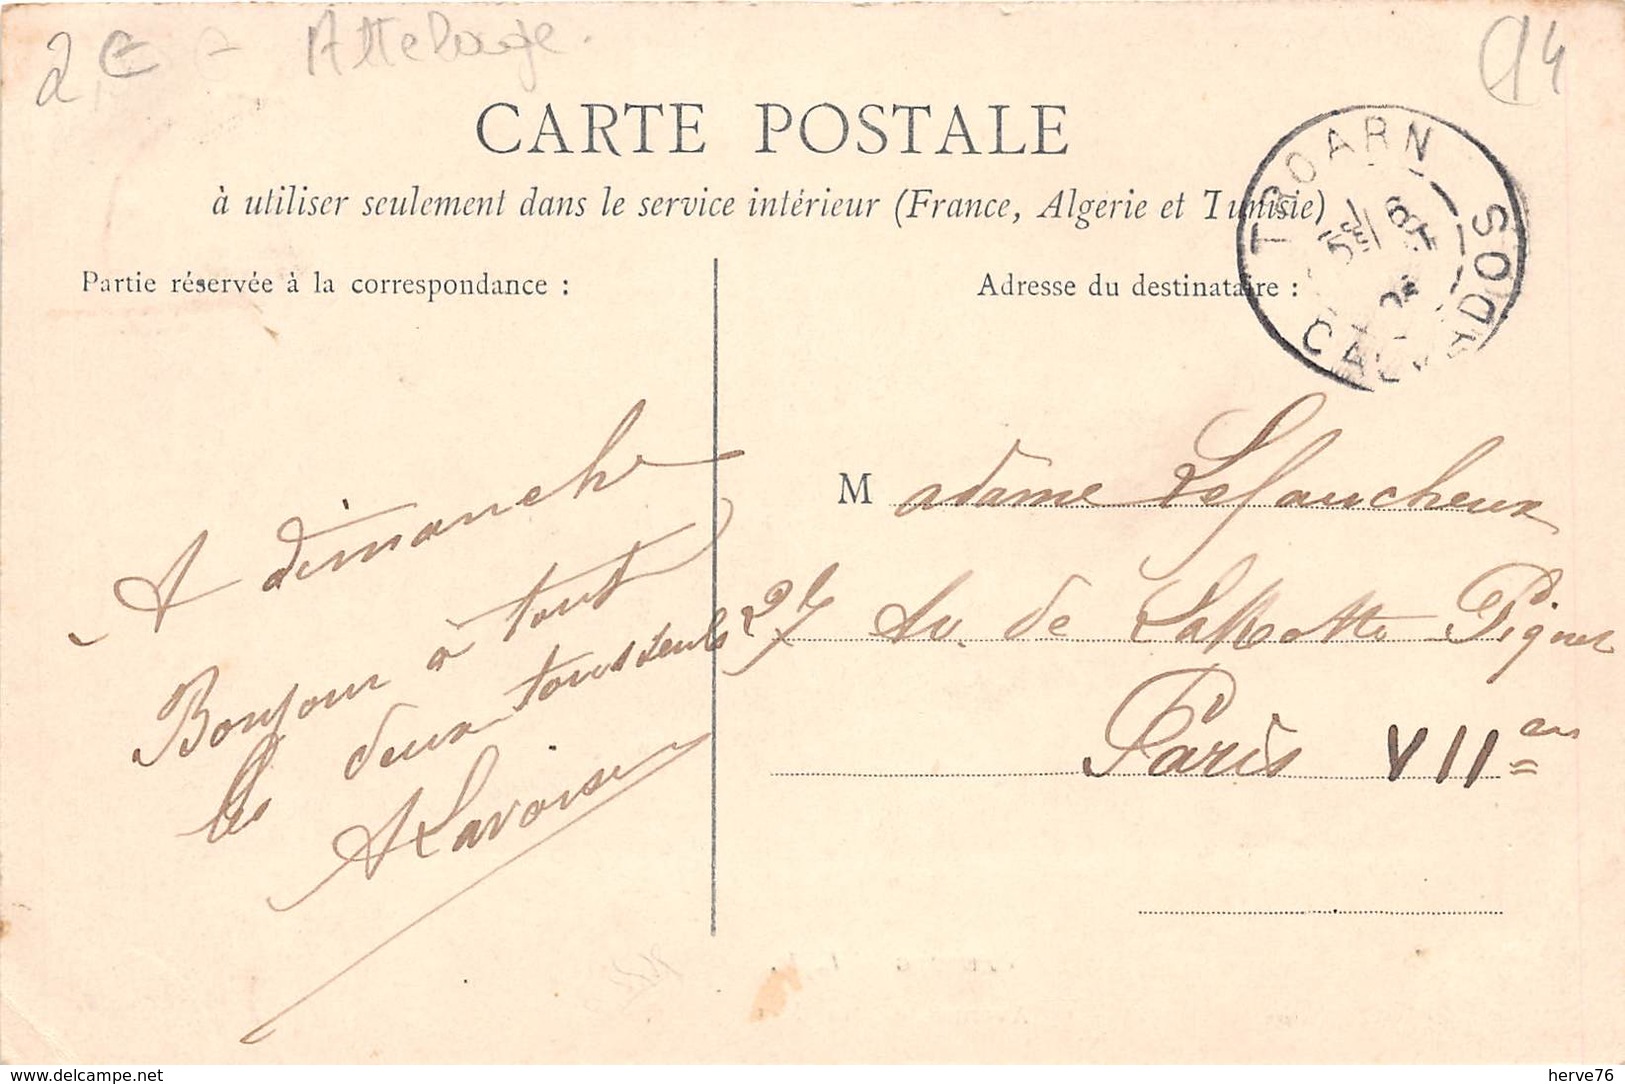 2 €
Attelage.
14
CARTE POSTALE
à utiliser seulement dans le service intérieur (France, Algérie et Tunisie)
TROARN
CALVADOS
Partie réservée à la correspondance :
Adresse du destinataire :
A dimanche
Bonjour à tout
les deux tousseuls
A Lavoise
Madame Lefaucheux
27 Av. de LaMotte Piquet
Paris VII em
www.delcampe.net
herve76